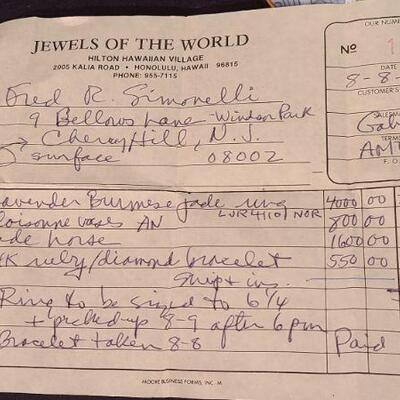 JEWELS OF THE WORLD
HILTON HAWAIIAN VILLAGE
2005 KALIA ROAD • HONOLULU, HAWAII 96815
PHONE: 955-7115
OUR NUM
No 1
8-8-
CUSTOMER'S
Fred R. Simonelli
9 Bellows Lane - Windsor Park
Cherry Hill, N.J.
surface 08002
SALESMA
Gab
TERMS
AM
F.O.
avender Burmese jade ring 4000 00
loisonne vases AN LUR4110/NOR 800 00
ade horse 1600 00
K ruby/diamond bracelet 550 00
Ship + ins.
Ring to be sized to 6 1/4
+ picked-up 8-9 after 6pm
Bracelet taken 8-8 Paid
MOORE BUSINESS FORMS, INC. M